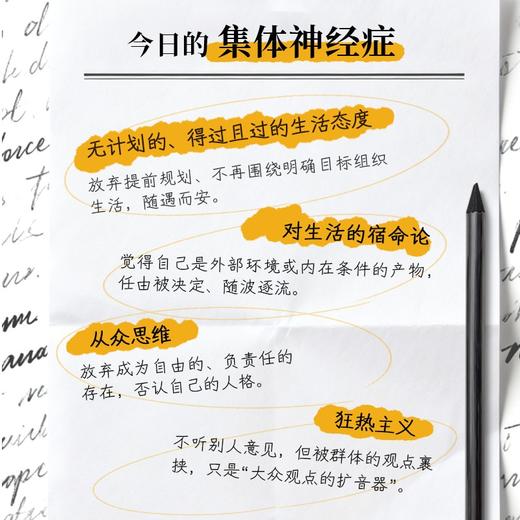 今日的 集体神经症
无计划的、得过且过的生活态度
放弃提前规划、不再围绕明确目标组织
生活，随遇而安。
对生活的宿命论
觉得自己是外部环境或内在条件的产物，
任由被决定、随波逐流。
从众思维
放弃成为自由的、负责任的
存在，否认自己的人格。
狂热主义
不听别人意见，但被群体的观点裹
挟，只是“大众观点的扩音器”。